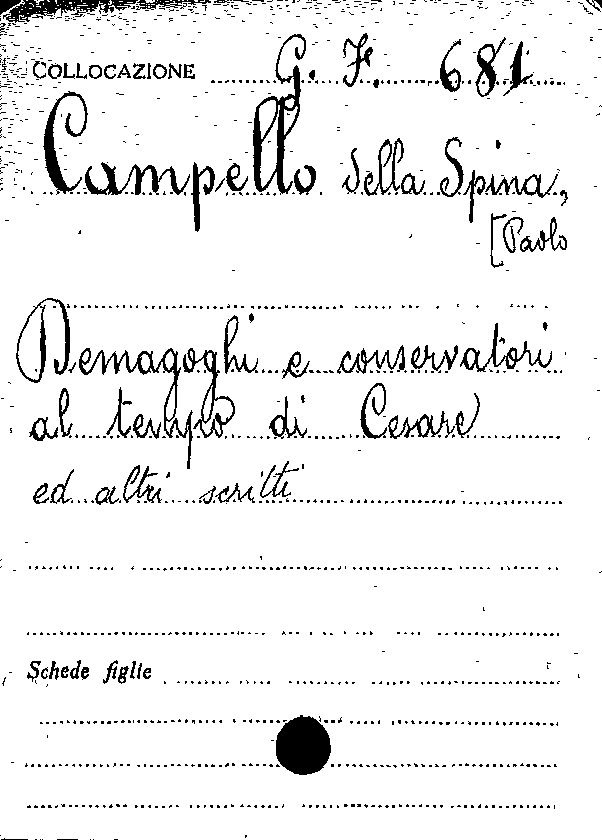 COLLOCAZIONE G. F. 681
Campello della Spina,
[Paolo
Demagoghi e conservatori
al tempo di Cesare
ed altri scritti
Schede figlie